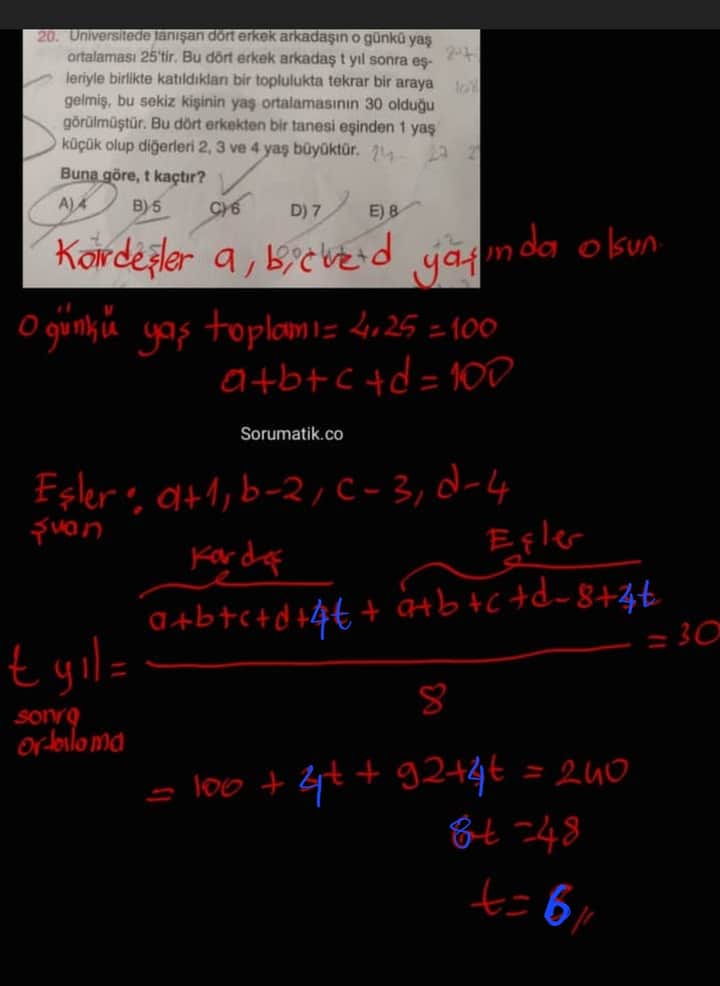 20. Üniversitede tanışan dört erkek arkadaşın o günkü yaş
ortalaması 25'tir. Bu dört erkek arkadaş t yıl sonra eş-
leriyle birlikte katıldıkları bir toplulukta tekrar bir araya
gelmiş, bu sekiz kişinin yaş ortalamasının 30 olduğu
görülmüştür. Bu dört erkekten bir tanesi eşinden 1 yaş
küçük olup diğerleri 2, 3 ve 4 yaş büyüktür.
Buna göre, t kaçtır?
A) 4 B) 5 C) 6 D) 7 E) 8
Kardeşler a, b, c ve d yaşında olsun.
O günkü yaş toplamı = 4.25 = 100
a+b+c+d = 100
Sorumatik.co
Eşler : a+1, b-2, c-3, d-4
şuan
Kardeş Eşler
a+b+c+d+4t + a+b+c+d-8+4t
t yıl = = 30
sonra 8
ortalama
= 100 + 4t + 92+4t = 240
8t = 48
t = 6 //